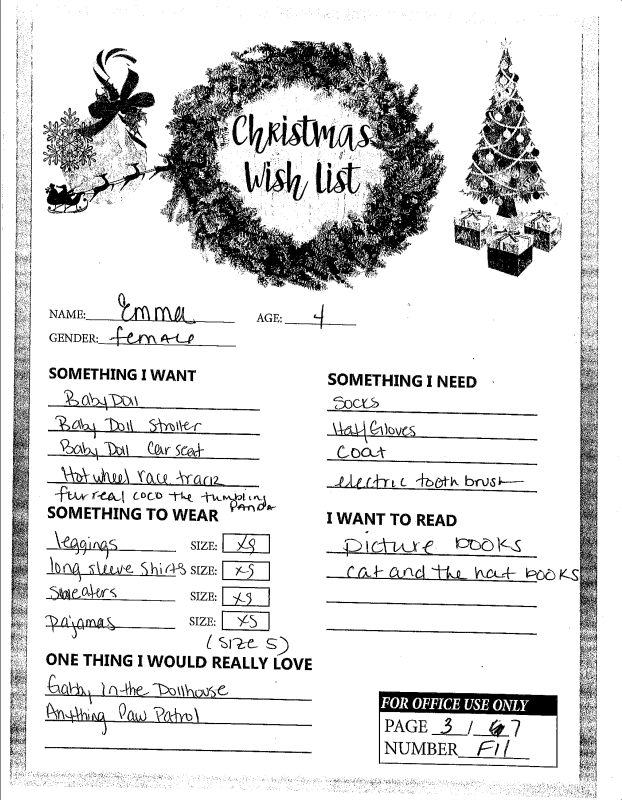 Christmas
Wish List
NAME: Emma AGE: 4
GENDER: female
SOMETHING I WANT
Baby Doll
Baby Doll Stroller
Baby Doll Car seat
Hot wheel race track
fur real coco the tumbling
Panda
SOMETHING I NEED
Socks
Hat/Gloves
Coat
electric tooth brush
SOMETHING TO WEAR
leggings SIZE: XS
long sleeve shirts SIZE: XS
Sweaters SIZE: XS
Pajamas SIZE: XS
(Size 5)
I WANT TO READ
Picture books
cat and the hat books
ONE THING I WOULD REALLY LOVE
Gabby in the Dollhouse
Anything Paw Patrol
FOR OFFICE USE ONLY
PAGE 3 / 7
NUMBER F11